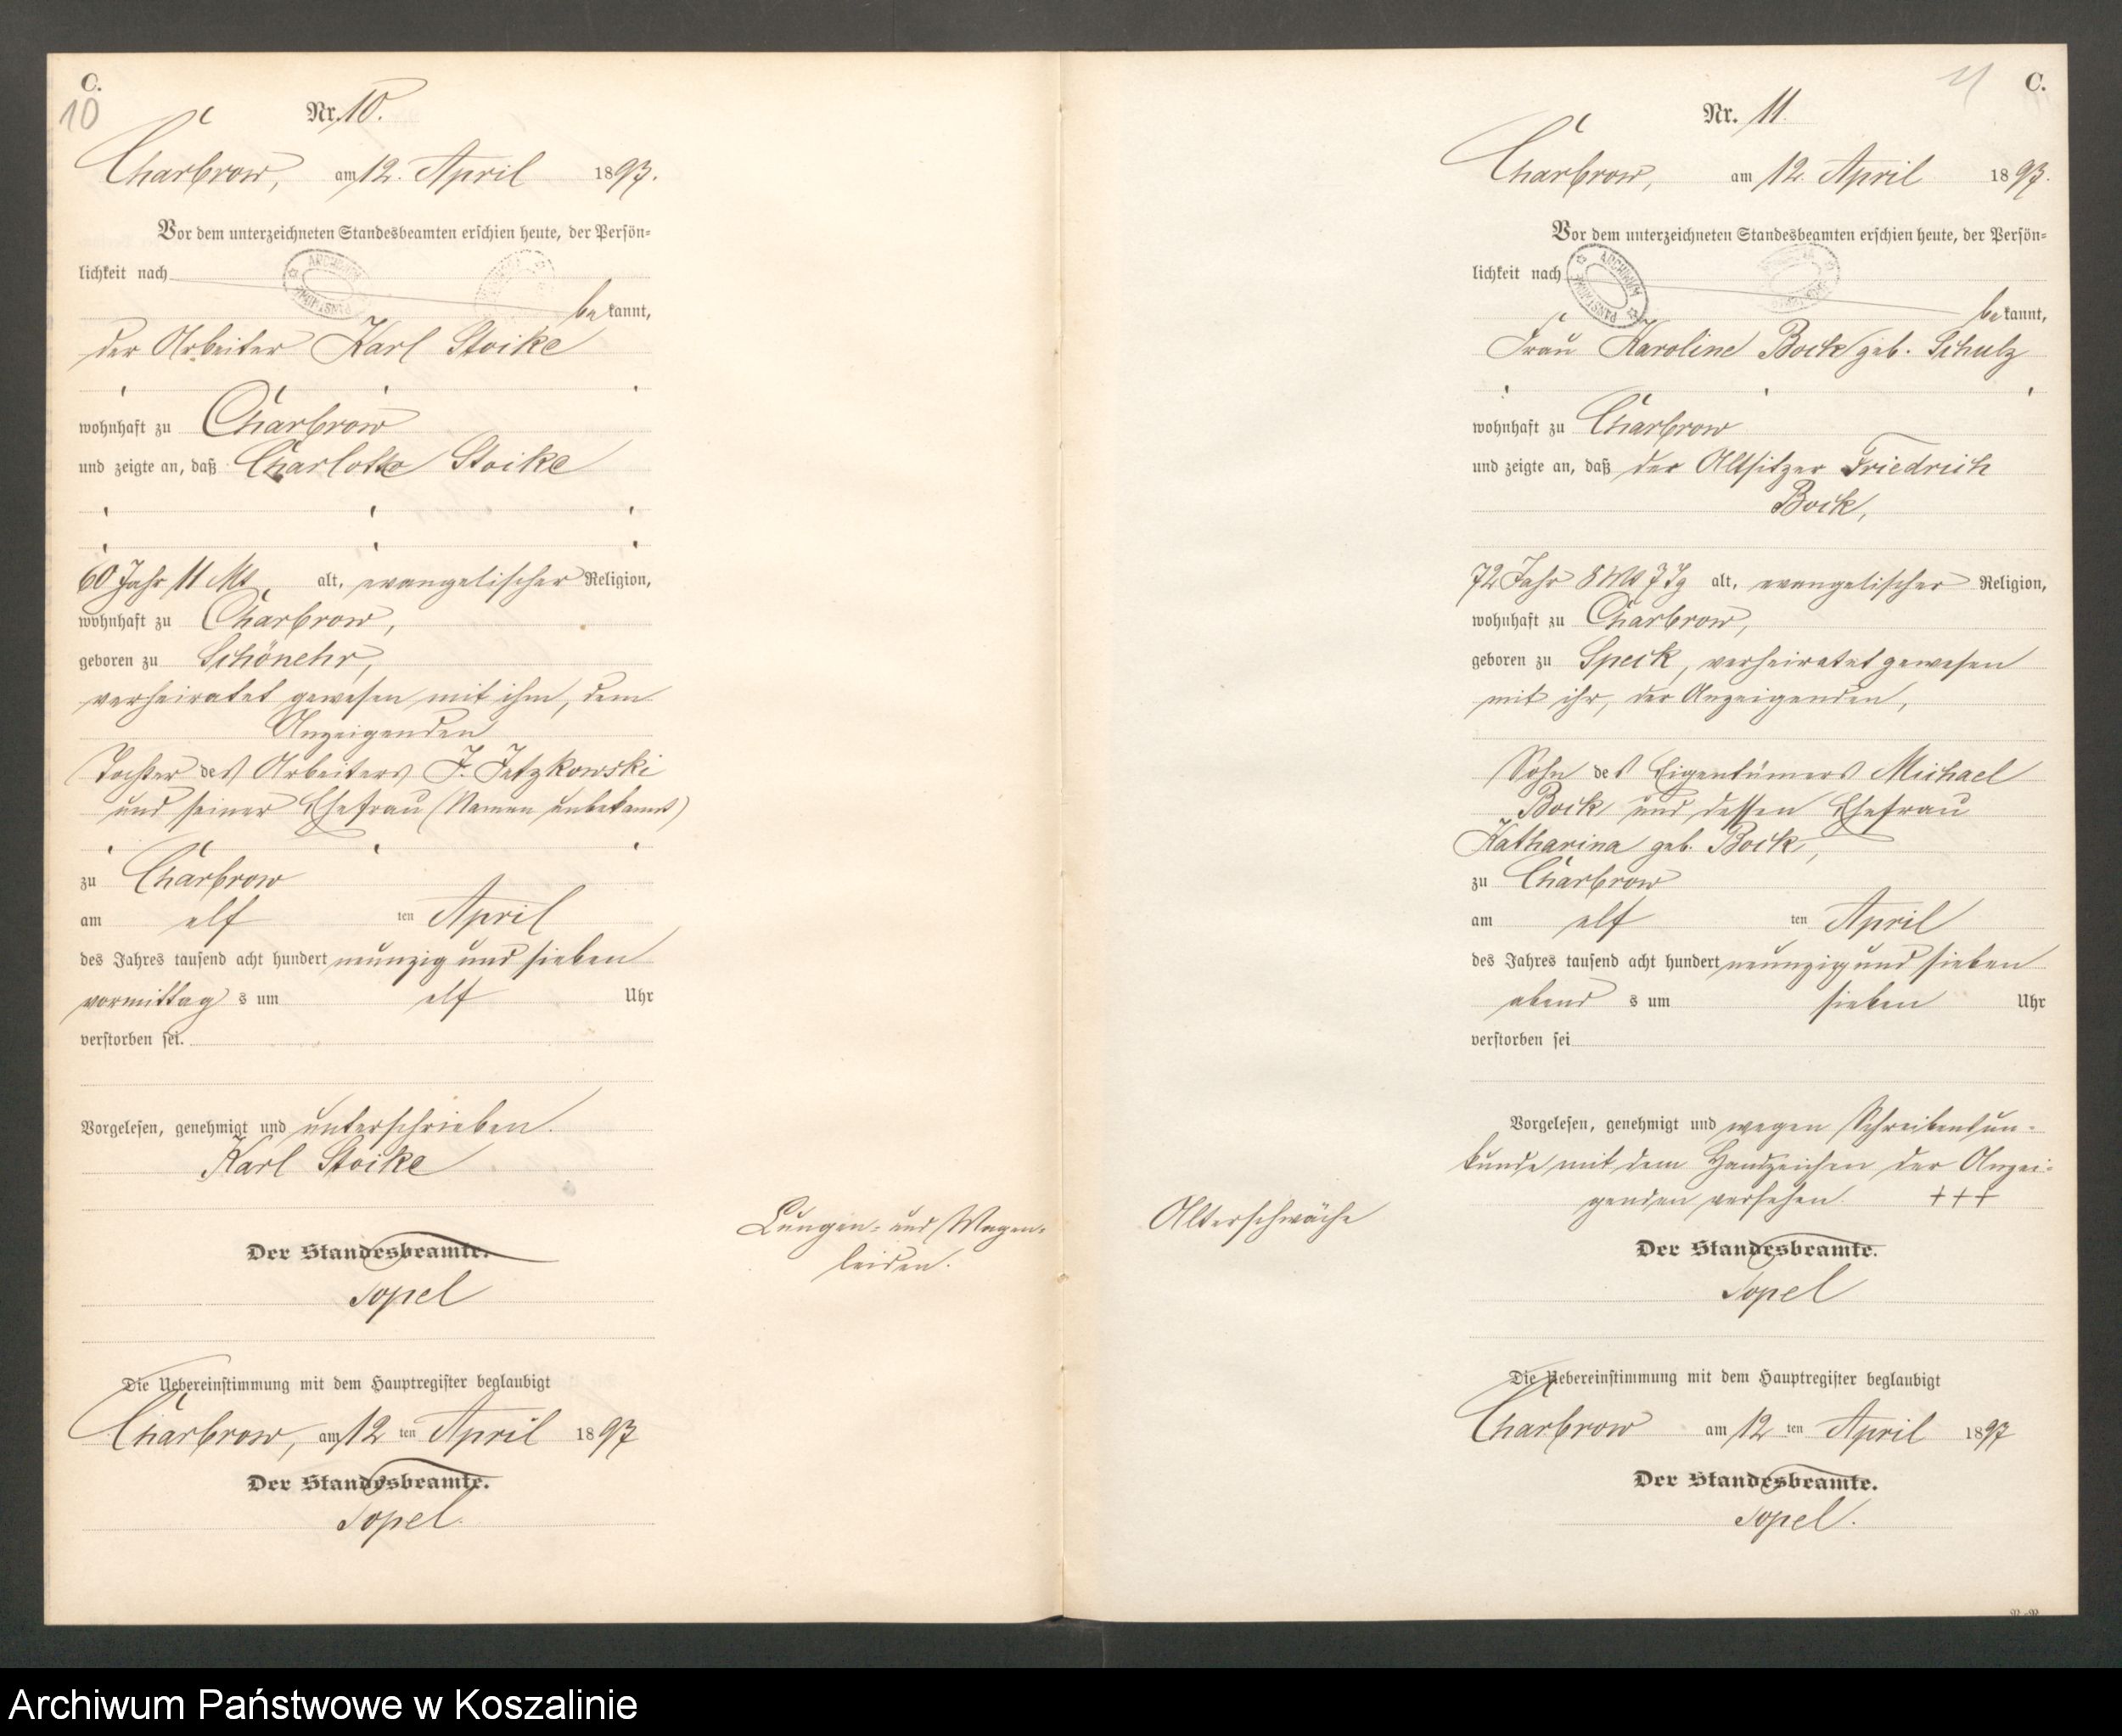 C.
10
Nr. 10.
Charbrow, am 12. April 1897.
Vor dem unterzeichneten Standesbeamten erschien heute, der Persön-
lichkeit nach
bekannt,
der Arbeiter Karl Stoike
wohnhaft zu Charbrow
und zeigte an, daß Charlotte Stoike
60 Jahr 11 Mt alt, evangelischer Religion,
wohnhaft zu Charbrow,
geboren zu Schönehr,
verheiratet gewesen mit ihm, dem
Anzeigenden
Tochter des Arbeiters J. Jetzkowski
und seiner Ehefrau (Namen unbekannt)
zu Charbrow
am elf ten April
des Jahres tausend acht hundert neunzig und sieben
vormittag s um elf Uhr
verstorben sei.
Vorgelesen, genehmigt und unterschrieben.
Karl Stoike
Der Standesbeamte.
Topel
Die Uebereinstimmung mit dem Hauptregister beglaubigt
Charbrow, am 12 ten April 1897
Der Standesbeamte.
Topel.
Lungen- und Magen-
leiden.
C.
11
Nr. 11.
Charbrow, am 12. April 1897.
Vor dem unterzeichneten Standesbeamten erschien heute, der Persön-
lichkeit nach
ARCHIWUM PAŃSTWOWE
bekannt,
Frau Karoline Bock geb. Schulz
wohnhaft zu Charbrow
und zeigte an, daß der Altsitzer Friedrich
Bock,
72 Jahr 8 Mt 7 Tg alt, evangelischer Religion,
wohnhaft zu Charbrow,
geboren zu Speck, verheiratet gewesen
mit ihr, der Anzeigenden,
Sohn des Eigentümers Michael
Bock und dessen Ehefrau
Katharina geb. Bock,
zu Charbrow
am elf ten April
des Jahres tausend acht hundert neunzig und sieben
abend s um sieben Uhr
verstorben sei
Vorgelesen, genehmigt und wegen Schreibensun-
kunde mit dem Handzeichen der Anzei-
genden versehen. +++
Der Standesbeamte.
Topel
Die Uebereinstimmung mit dem Hauptregister beglaubigt
Charbrow am 12 ten April 1897
Der Standesbeamte.
Topel.
Alterschwäche
Archiwum Państwowe w Koszalinie